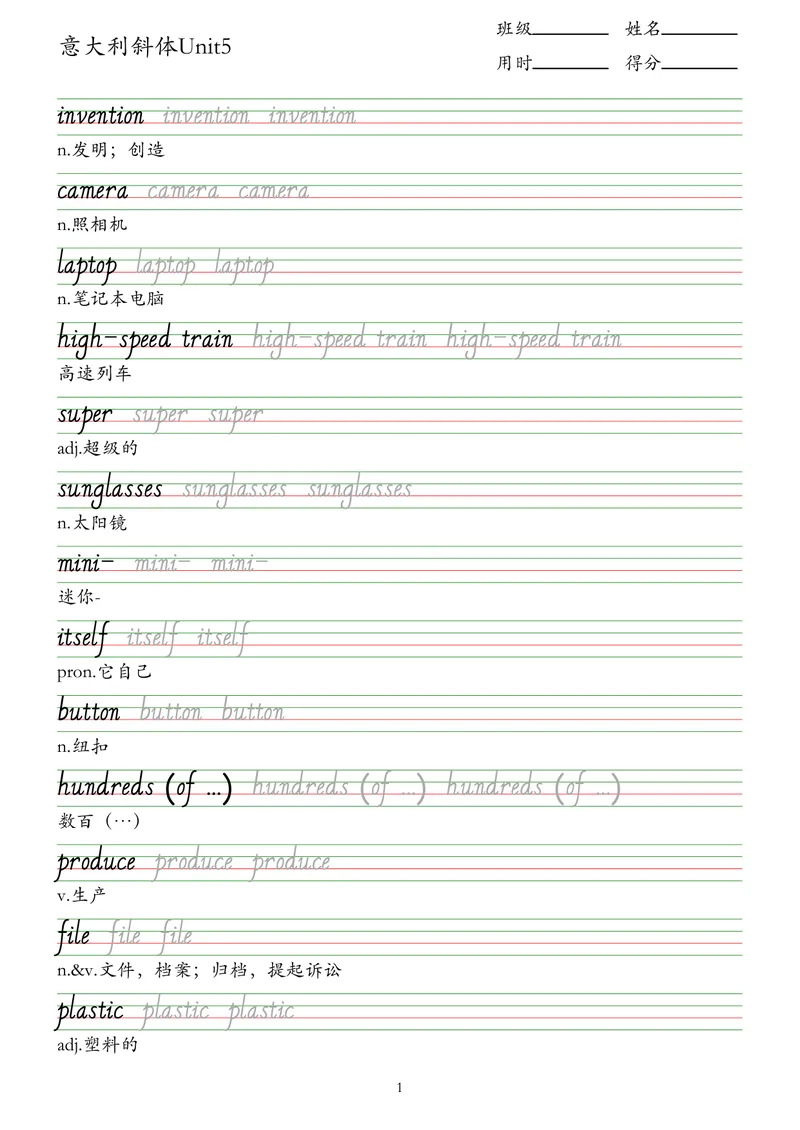 班级________ 姓名________
意大利斜体Unit5
用时________ 得分________
invention invention invention
n.发明；创造
camera camera camera
n.照相机
laptop laptop laptop
n.笔记本电脑
high-speed train high-speed train high-speed train
高速列车
super super super
adj.超级的
sunglasses sunglasses sunglasses
n.太阳镜
mini- mini- mini-
迷你-
itself itself itself
pron.它自己
button button button
n.纽扣
hundreds (of ...) hundreds (of ...) hundreds (of ...)
数百（…）
produce produce produce
v.生产
file file file
n.&v.文件，档案；归档，提起诉讼
plastic plastic plastic
adj.塑料的
1